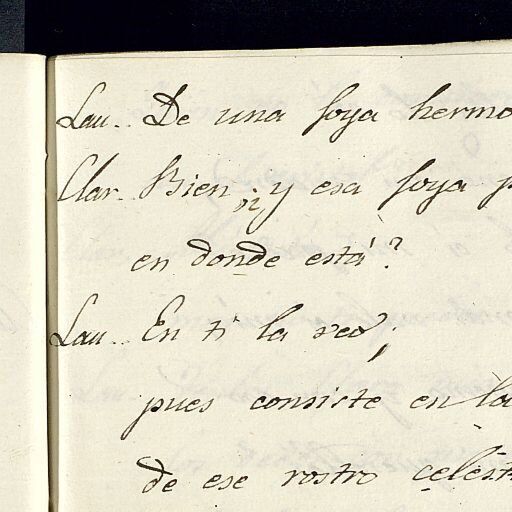 Lau.. De una joya hermo
Clar.. Bien, y esa joya p
en donde está?
Lau.. En ti la ves;
pues consiste en la
de ese rostro celest